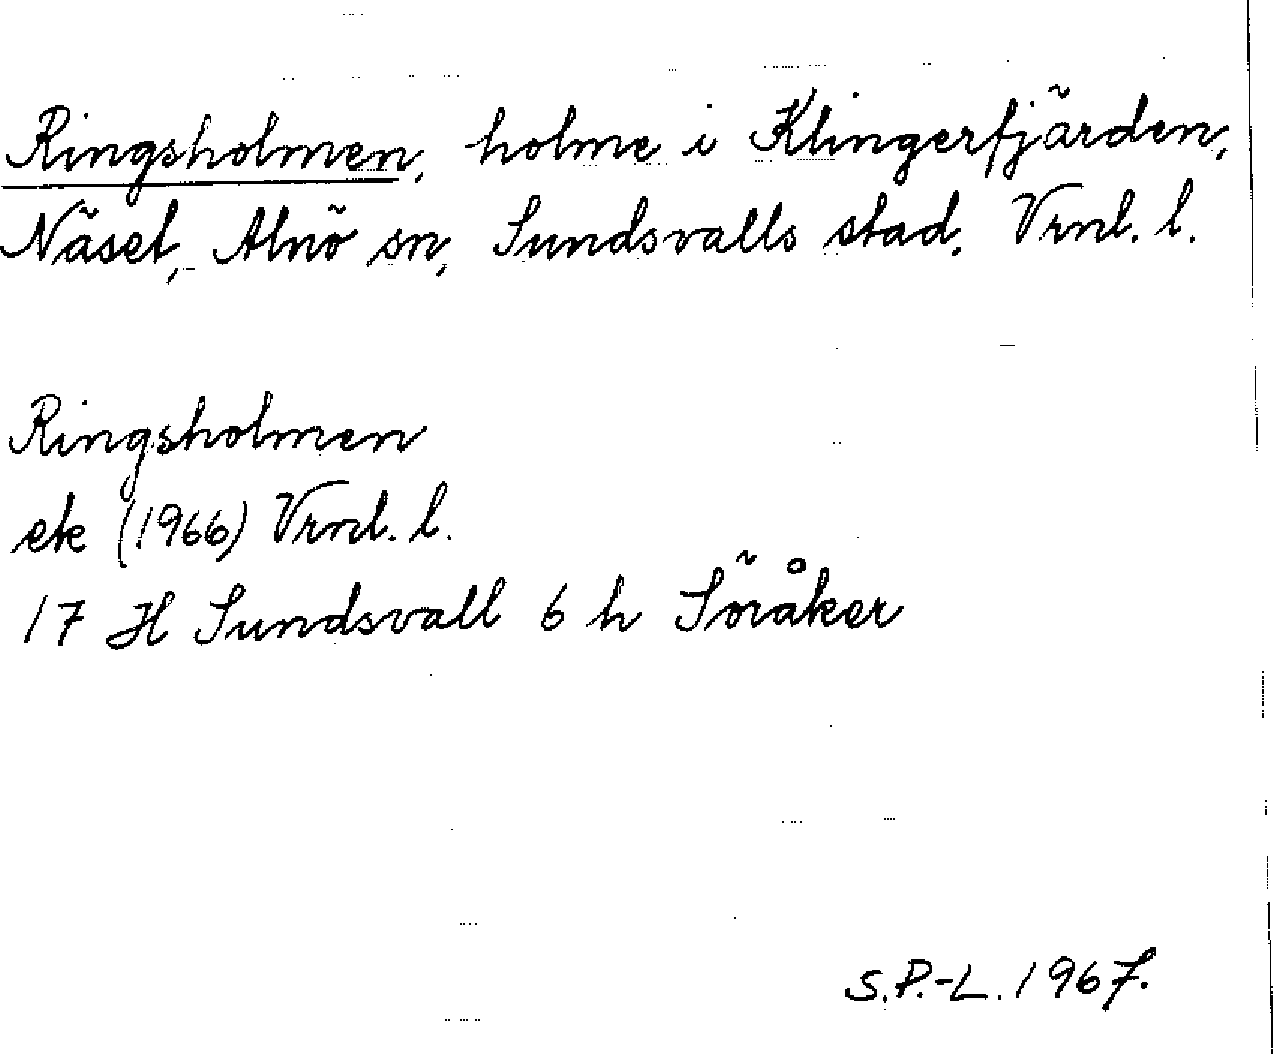 Ringsholmen, holme i Klingerfjärden,
Näset, Alnö sn, Sundsvalls stad, Vrnl. l.
Ringsholmen
ek (1966) Vrnl. l.
17 H Sundsvall 6 h Söråker
S.P.-L. 1967.